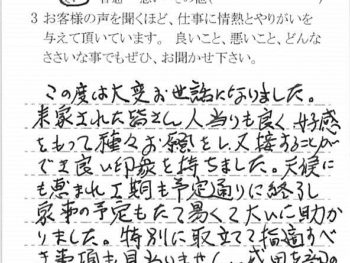 3 お客様の声を聞くほど、仕事に情熱とやりがいを
与えて頂いています。 良いこと、悪いこと、どんな
ささいな事でもぜひ、お聞かせ下さい。
この度は大変お世話になりました。
来家された皆さん人当りも良く好感
をもって種々お願をし又接することが
でき良い印象を持ちました。天候に
も恵まれ工期も予定通りに終了し
家事の予定もたて易くて大いに助か
りました。特別に取立てて指摘すべ
き事項も見わいません。